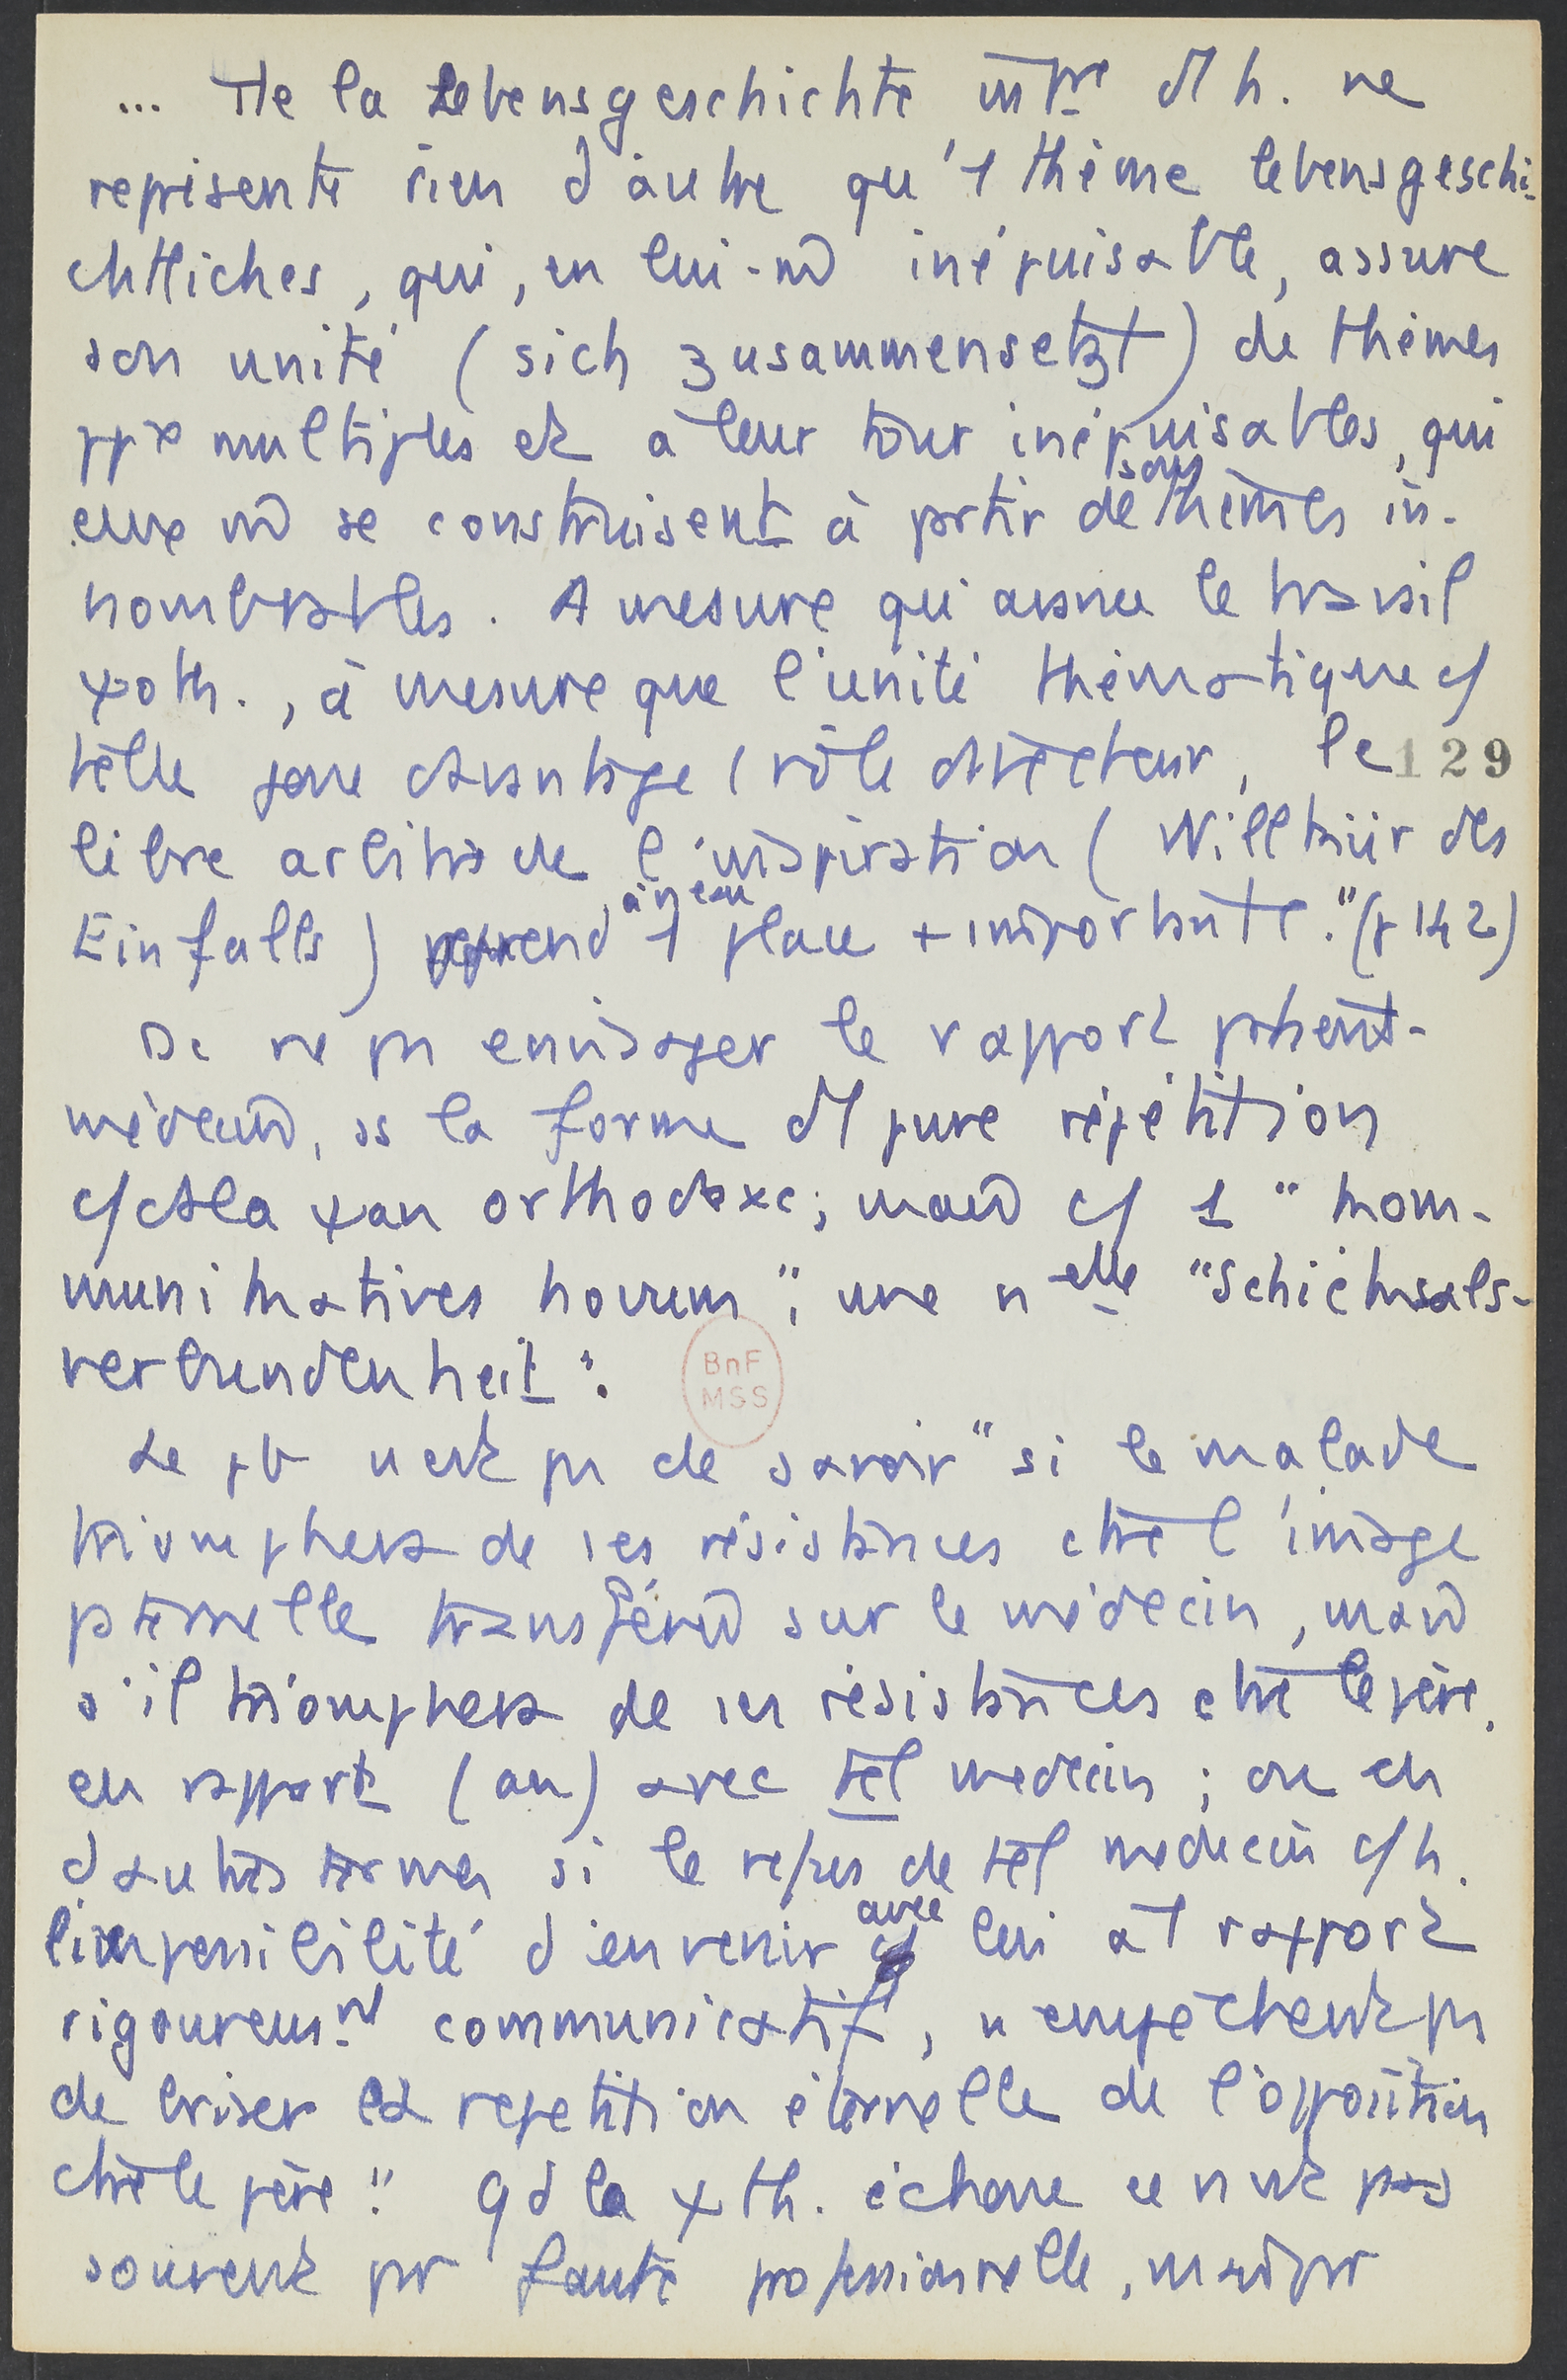 ... De la Lebensgeschichte intre d'1 h. ne
représente rien d'autre qu'1 thème lebensgeschi-
chtliches, qui, en lui-m̂ inépuisable, assure
son unité (sich zusammensetzt) de thèmes
multiples et à leur tour inépuisables, qui
eux m̂ se construisent à partir de sous thèmes in-
nombrables. A mesure qu'avance le travail
ψoth., à mesure que l'unité thématique c/
telle joue davantage 1 rôle directeur, le 129
libre arbitre de l'inspiration (Willkür des
Einfalls) reprend à neau 1 place + importante." (p 142)
Dc ne pas envisager le rapport patient-
médecin, ss la forme d'1 pure répétition
c/ ds la ψan orthodoxe; mais c/ 1 "kom-
munikatives novum", une nelle "Schicksals-
verbundenheit".
Le pb n'est pas de savoir "si le malade
triomphera de ses résistances ctre l'image
paternelle transférée sur le médecin, mais
s'il triomphera de ses résistances ctre le père,
en rapport (an) avec tel médecin; ou en
d'autres termes si le refus de tel médecin c/ h.
l'impossibilité d'en venir avec lui à 1 rapport
rigoureusnt communicatif, n'empêchent pas
de briser la répétition éternelle de l'opposition
ctre le père". Qd la ψth. échoue ce n'est pas
souvent pr faute professionnelle, mais pr
BnF
MSS